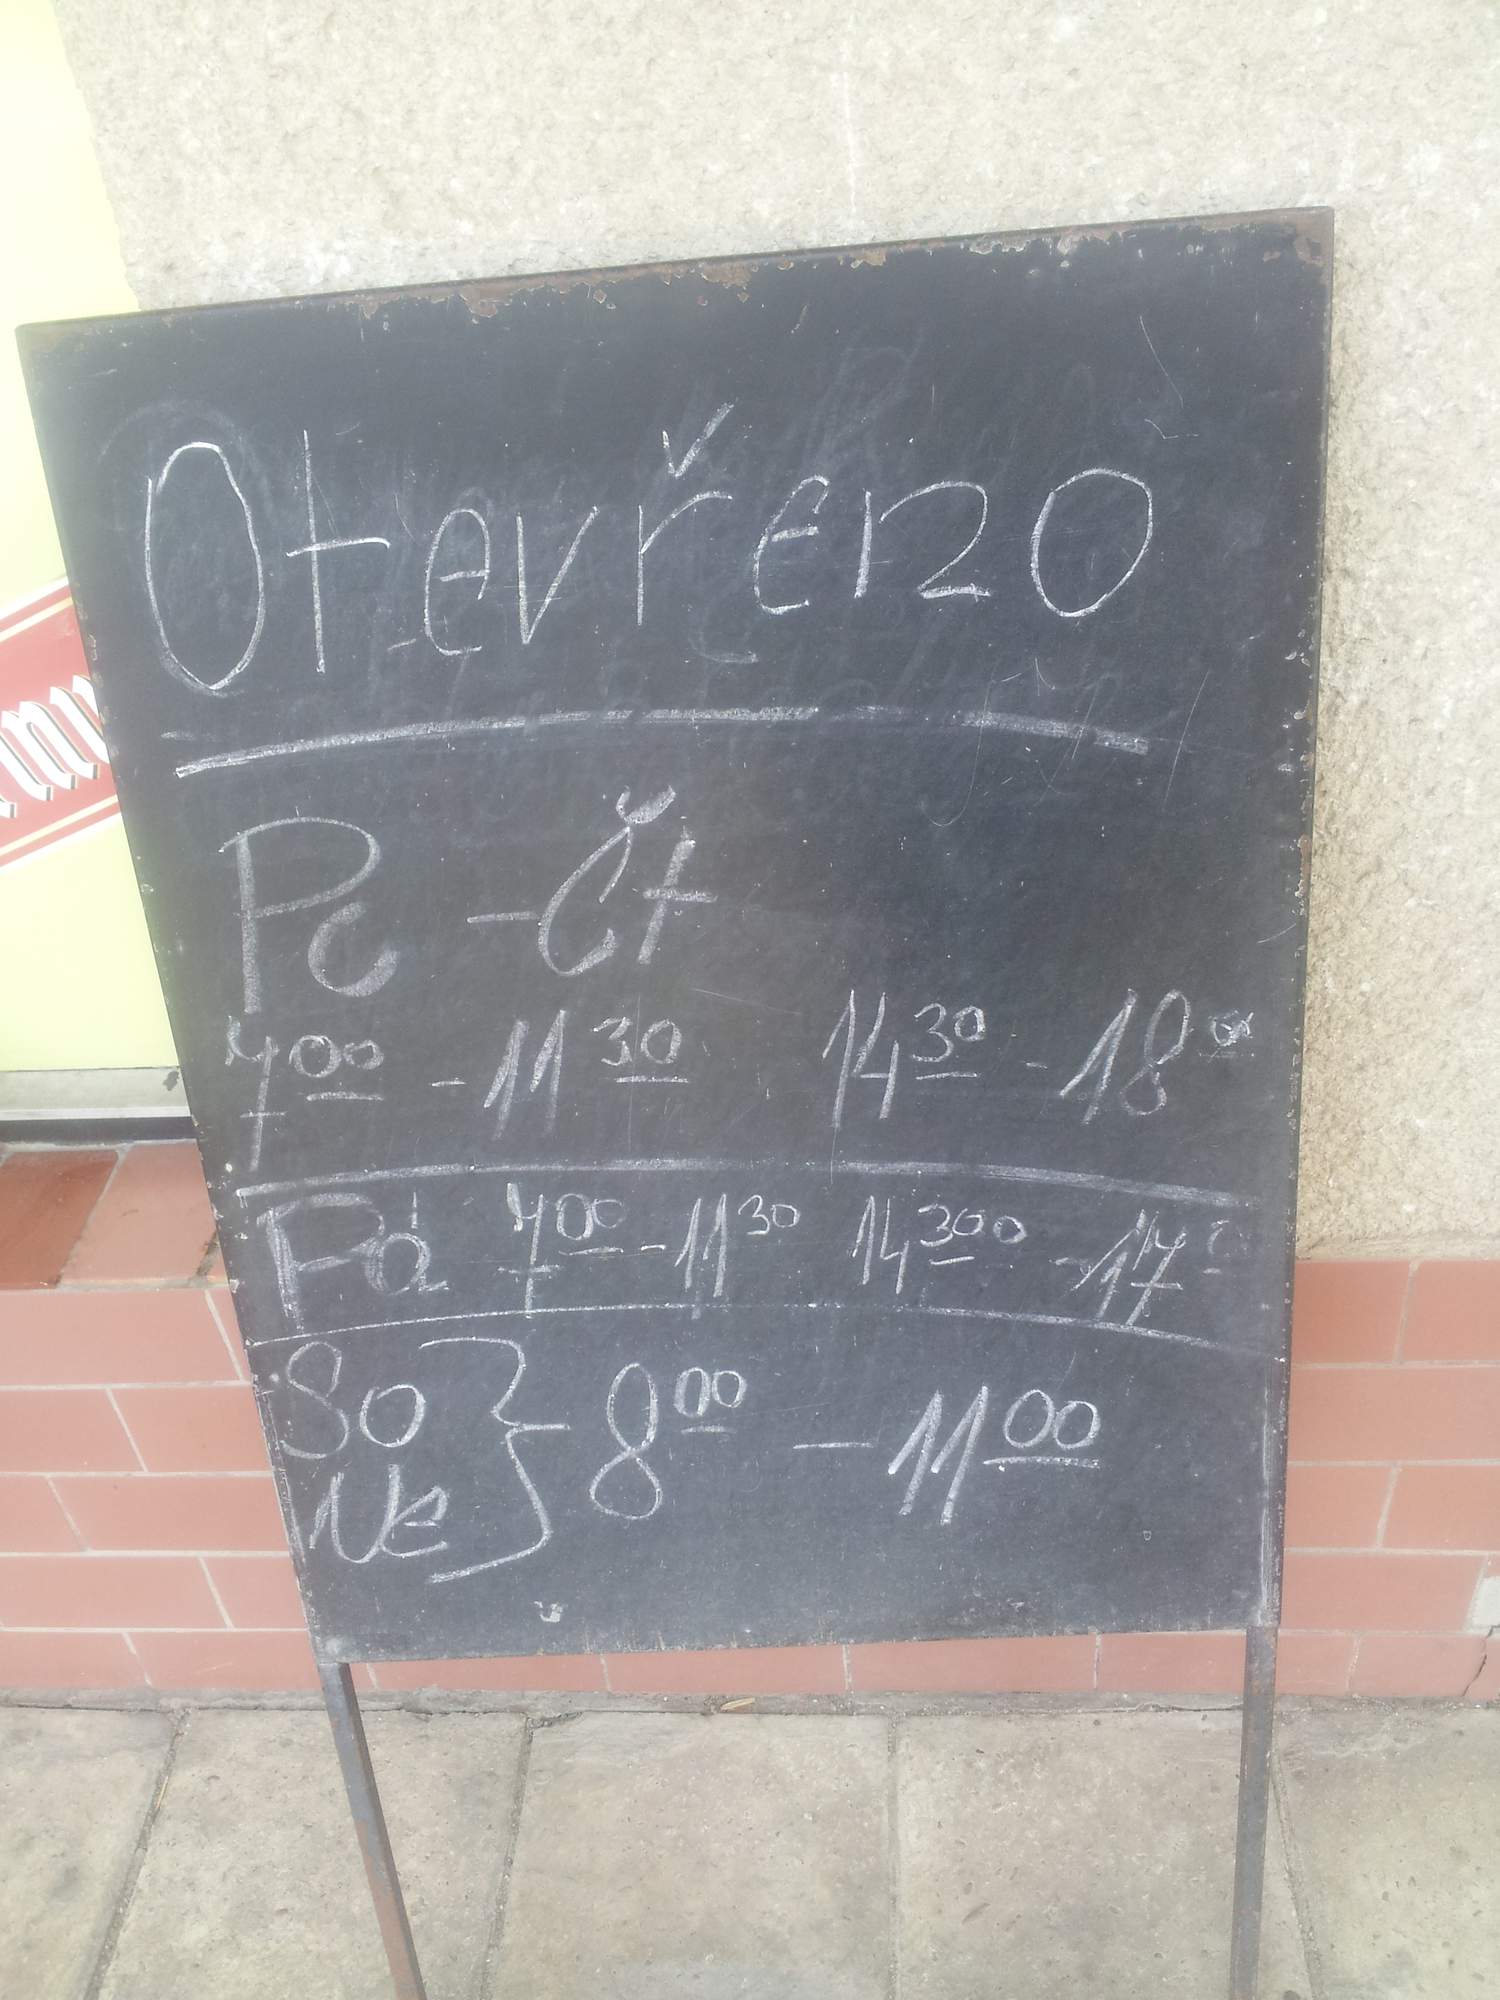 Otevřeno
Po - Čt
7 00 - 11 30 14 30 - 18 00
Pá 7 00 - 11 30 14 300 - 17
So
Ne } 8 00 - 11 00